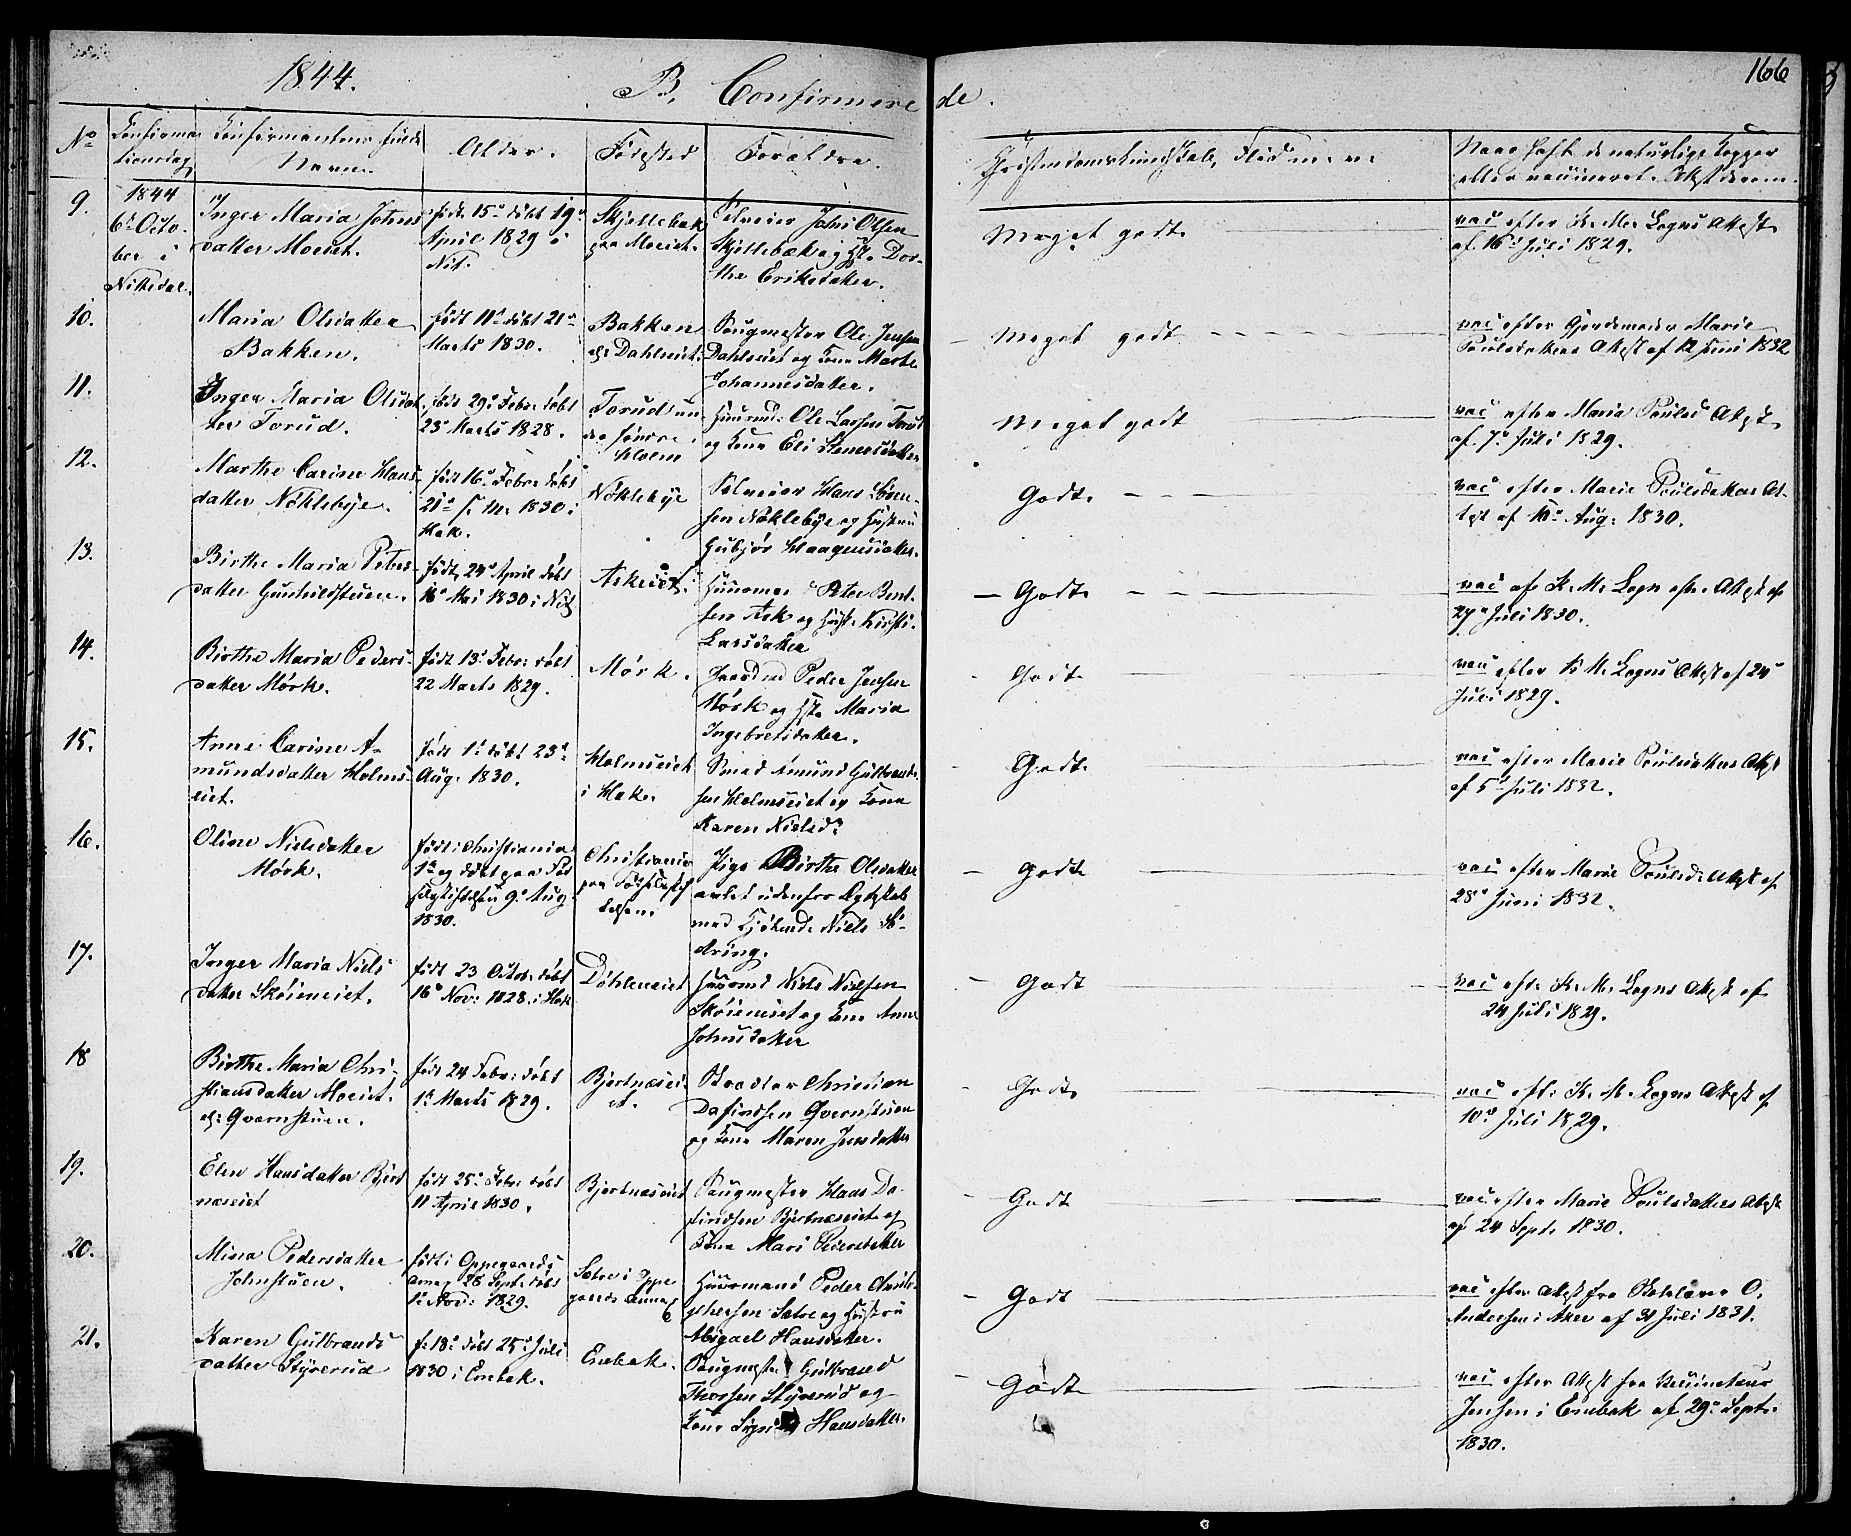 1844. B. Confirmerede. 166
No Confirmationsdag Confirmantens fulde Navn. Alder. Fødested Forældre. Christendomskundskab, Flid m. v. Naar haft de naturlige Kopper eller vaccineret. Attest derom.
9. 1844 6te October i Nittedal. Inger Maria Johnsdatter Moeiet. født 15de døbt 19de April 1829 i Nit. Skyttebæk paa Moeiet. Selveier John Olsen Skyttebæk og Hst. Dorthe Eriksdatter. Meget godt vac. efter K. M. Logns Attest af 16de Juli 1829.
10. Maria Olsdatter Bakken. født 11te døbt 21de Marts 1830. Bakken og Dahlseiet. Saugmester Ole Jensen Dahlseiet og Kone Marte Johannesdatter. Meget godt vac. efter Gjordemoder Marie Poulsdatters Attest af 12 Juni 1832
11. Inger Maria Olsdatter Torud. født 29de Febr. døbt 23de Marts 1828. Torud under søndre Holm Huusmd. Ole Larsen Torud og Kone Eli Steneredatter Meget godt vac. efter Maria Poulsd. Attest af 7de Juli 1829.
12. Marthe Carine Hansdatter Nøklebye. født 16de Febr. døbt 21de s. m. 1830 i Hak. Nøklebye Selveier Hans Larsen Nøklebye og Hustru Gubjør Haagensdatter. Godt. vac. efter Marie Poulsdatters Attest af 10de Aug. 1830.
13. Birthe Maria Petersdatter Gunhildstuen. født 24de April døbt 16de Mai 1830 i Nit. Askeiet. Huusmand Peter Bentsen Ask og Hust. Kirsti Larsdatter Godt. vac. af K. M. Logn efter Attest af 27de Juli 1830.
14. Birthe Maria Pedersdatter Mørk. født 13de Febr. døbt 22 Marts 1829. Mørk. Peder Jensen Mørk og Hst. Maria Ingebretsdatter. Godt. vac. efter K. M. Logns Attest af 24de Juli 1829.
15. Anne Carine Amundsdatter Holmseiet. født 1te døbt 23de Aug. 1830. Holmseiet i Hak. Smed Amund Gulbrandsen Holmseiet og Kone Karen Nielsdr Godt. vac. efter Marie Poulsdatters Attest af 5te Juli 1832.
16. Oline Nielsdatter Mørk. født i Christiania 1te og døbt paa Fødselsstiftelsen 9de Aug. 1830. Christiania paa Fødselsstiftelsen. Pige Birthe Olsdatter avlet udenfor Ægteskab med Niels Sødring. Godt vac. efter Marie Poulsd. Attest af 28de Juni 1832.
17. Inger Maria Nielsdatter Skøieneiet. født 23 Octob. døbt 16de Nov. 1828 i Hak Døhleneiet Huusmd Niels Nielsen Skøieneiet og Kone Anne Johnsdatter Godt vac. eft. K. M. Logns Attest af 24 Juli 1829.
18 Birthe Maria Christiansdatter Moeiet. el. Qvernstuen. født 24 Febr. døbt 1te Marts 1829. Bjertnæseiet. Christian Dafindsen Qvernstuen og Kone Maren Jensdatter Godt. vac. eft. K. M. Logns Attest af 10de Juli 1829.
19. Elen Hansdatter Bjertnæseiet født 25de Febr. døbt 11 April 1830. Bjertnæseiet Saugmester Hans Dafindsen Bjertnæseiet og Kone Mari Pedersdatter Godt vac. efter Marie Poulsdatters Attest af 24 Sept. 1830.
20. Mina Pedersdatter Johnstuen. født i Oppegaards Annex 28 Sept. døbt 1te Nov. 1829. Sætre i Oppegaards Annex Huusmand Peder Sætre og Hustru Abigael Hansdatter. Godt vac. efter Attest fra Skolelærer O. Andersen i Aker af 31 Juli 1831.
21. Karen Gulbrandsdatter Styverud f. 18de døbt 25de Juli 1830 i Enebak. Enebak. Saugmester Gulbrand Thorsen Styverud og Kone Hansdatter. Godt vac. efter Attest fra Vaccinateur Jensen i Enebak af 29de Septr. 1830.